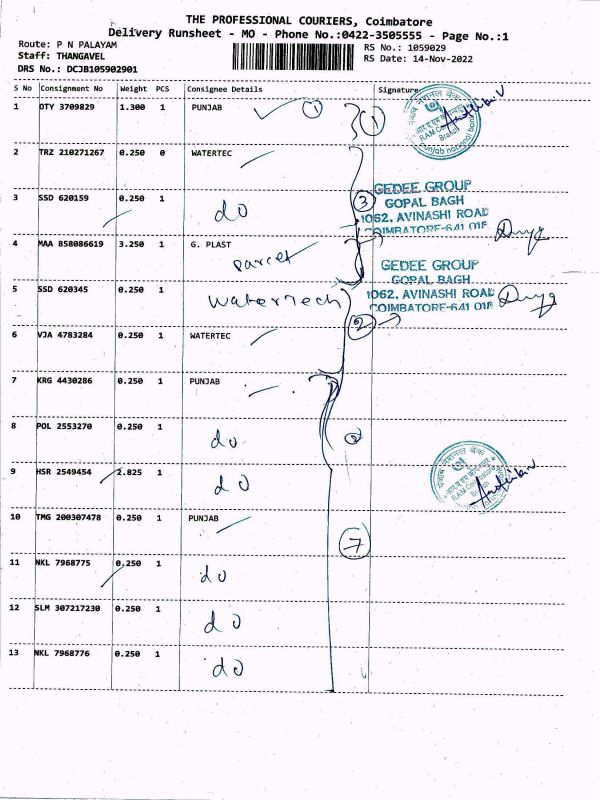 THE PROFESSIONAL COURIERS, Coimbatore
Delivery Runsheet - MO - Phone No.:0422-3505555 - Page No.:1
Route: P N PALAYAM
RS No.: 1059029
Staff: THANGAVEL
RS Date: 14-Nov-2022
DRS No.: DCJB105902901
S No Consignment No Weight PCS Consignee Details Signature
1 DTY 3709829 1.300 1 PUNJAB 1 1
पंजाब नैशनल बैंक
Punjab national bank
2 TRZ 210271267 0.250 0 WATERTEC
3 SSD 620159 0.250 1 do 3
GEDEE GROUP
GOPAL BAGH
1062, AVINASHI ROAD
COIMBATORE-641 018
4 MAA 858086619 3.250 1 G. PLAST
parcel
GEDEE GROUP
GOPAL BAGH
1062, AVINASHI ROAD
COIMBATORE-641 018
5 SSD 620345 0.250 1 Watertech
2
6 VJA 4783284 0.250 1 WATERTEC
7 KRG 4430286 0.250 1 PUNJAB
8 POL 2553270 0.250 1 do
9 HSR 2549454 2.825 1 do
10 TMG 200307478 0.250 1 PUNJAB
7
11 NKL 7968775 0.250 1 do
12 SLM 307217230 0.250 1 do
13 NKL 7968776 0.250 1 do